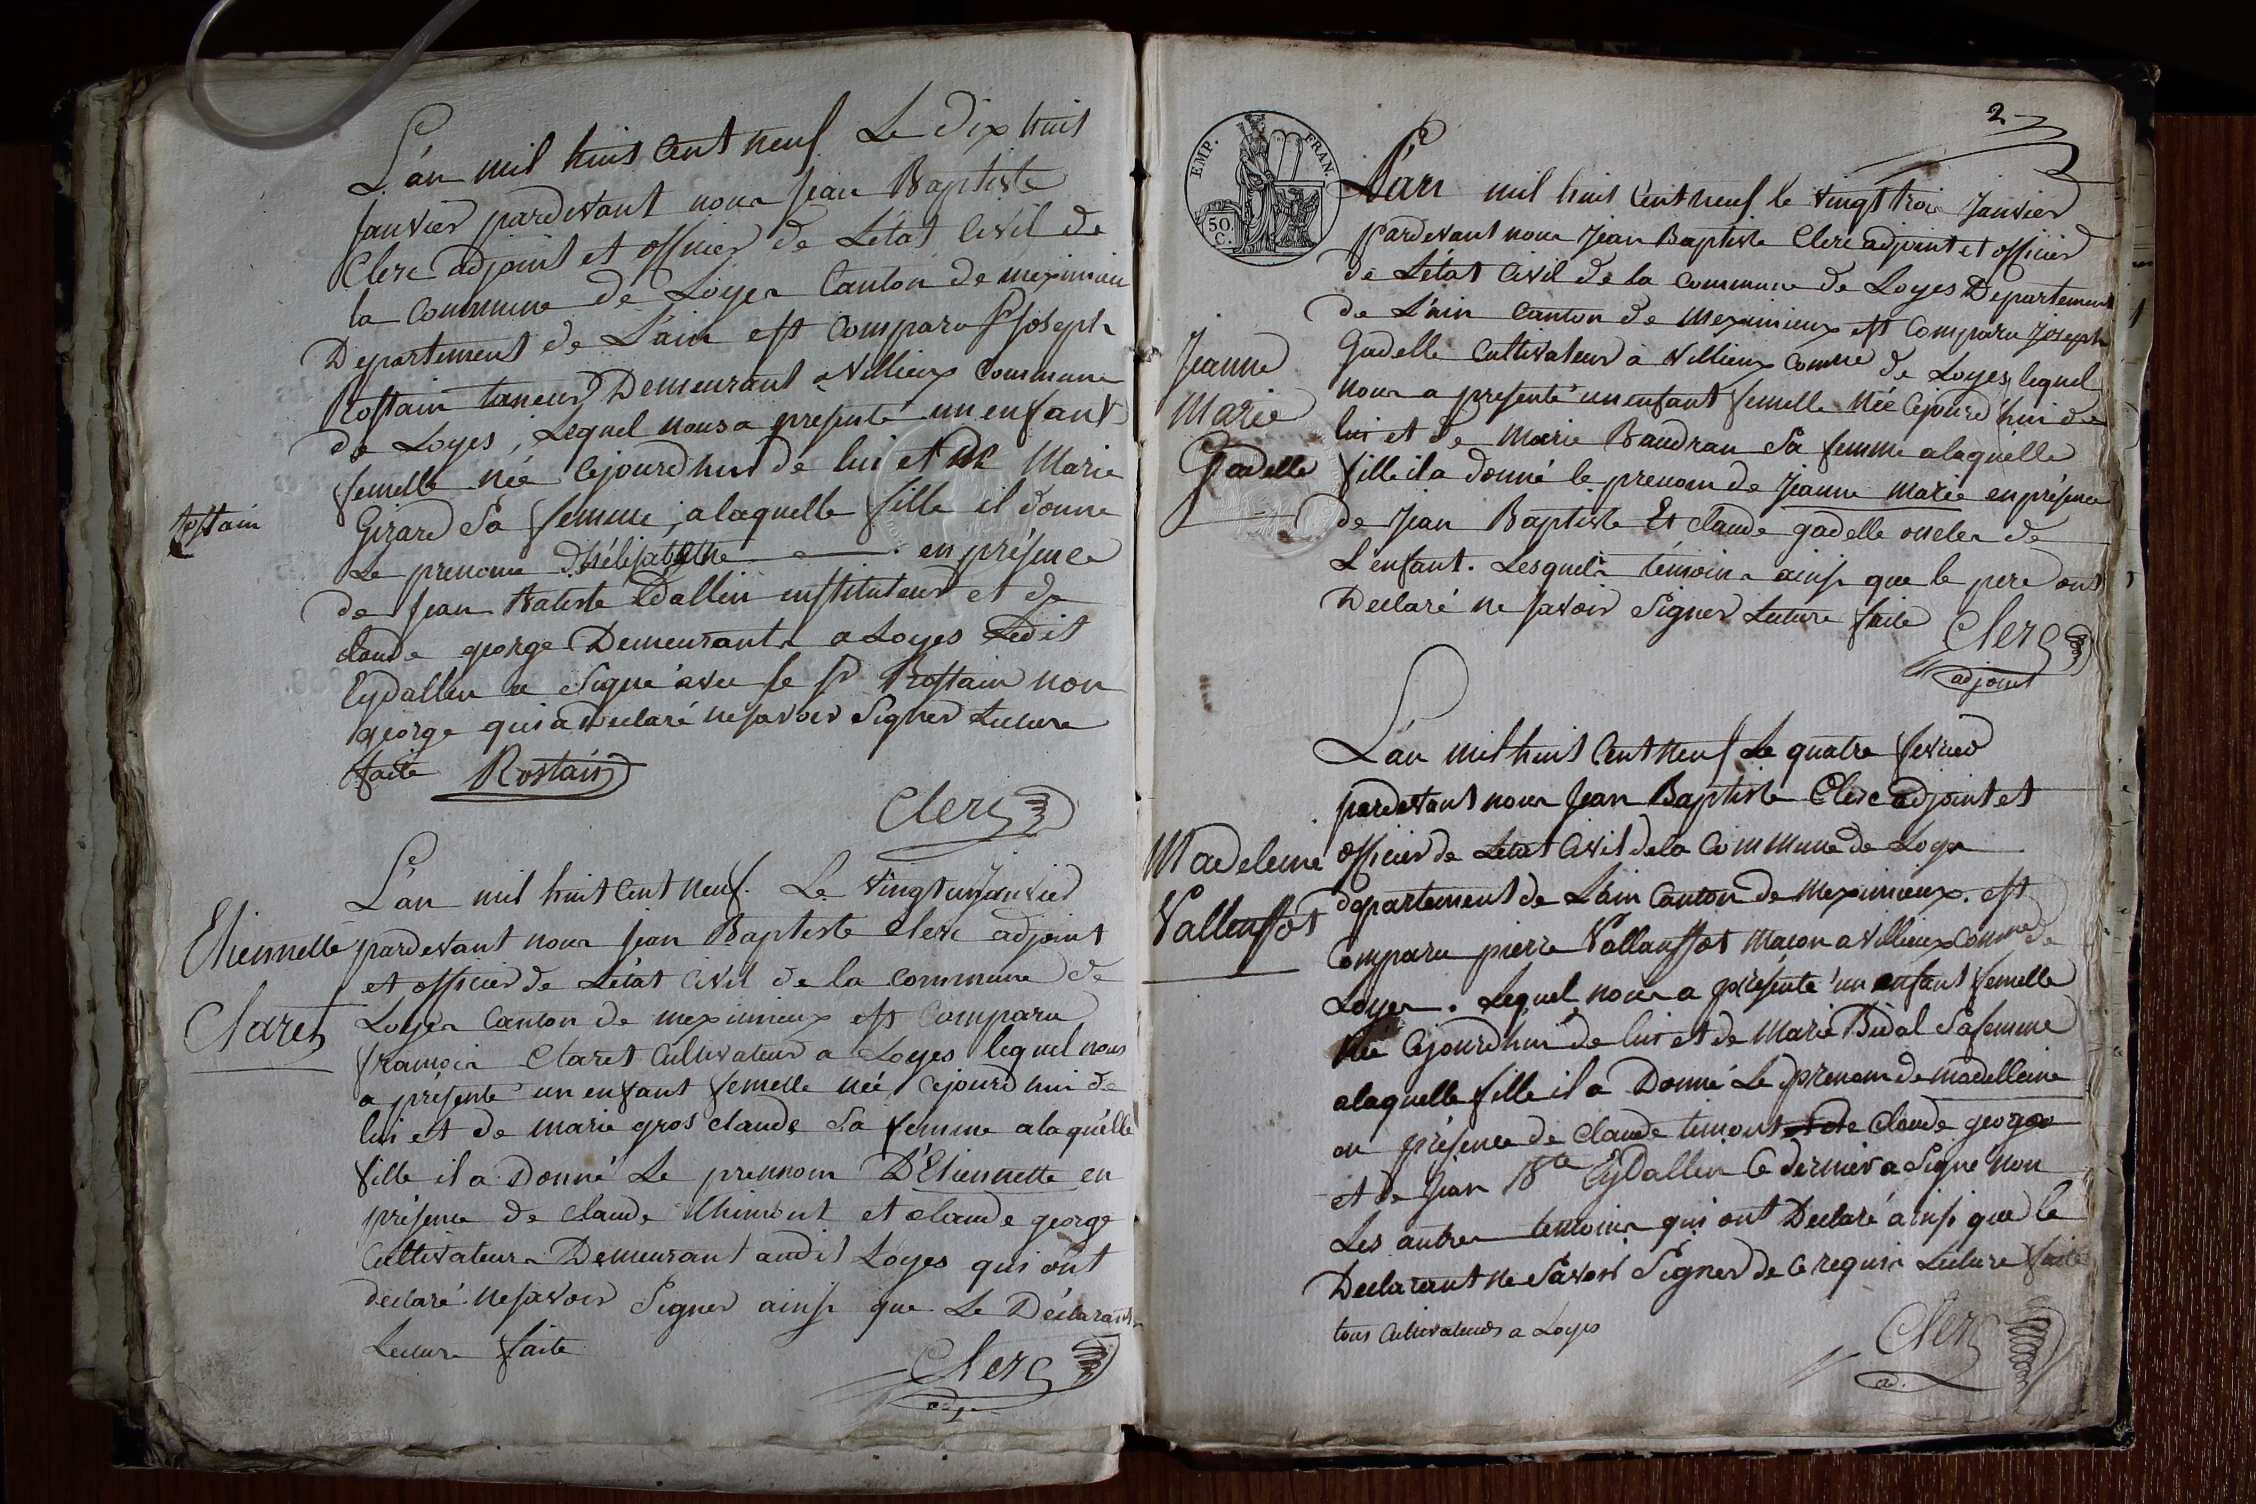 L'an mil huit cent neuf Le dix huit
janvier pardevant nous jean Baptiste
Clerc adjoint et officier de L'état Civil de
la Commune de Loyes Canton de meximieux
Departement de L'ain est Comparu Sr joseph
Rostain taneur Demeurant a Villieux Commune
de Loyes, Lequel nous a présenté un enfant
femelle née cejourdhui de lui et de Marie
Girard Sa femme, a laquelle fille il donne
Le prenom en présence
de jean Batiste Eydallin instituteur et de
claude george Demeurants a Loyes Ledit
Eydallin a Signé avec le Sr Rostain non
george qui a déclaré ne savoir Signer Lecture
faite Rostain
Clerc
Rostain
L'an mil huit cent neuf. Le vingt un janvier
pardevant nous jean Baptiste clerc adjoint
et officier de L'état Civil de la commune de
Loyes Canton de meximieux est Comparu
francois Claret Cultivateur a Loyes lequel nous
a présenté un enfant femelle née cejourdhui de
lui et de marie gros claude Sa femme a laquelle
fille il a Donné Le prennom D'Etiennette en
présence de claude thimont et claude george
Cultivateurs Demeurant audit Loyes qui ont
declaré ne savoir Signer ainsi que Le Déclarant
Lecture faite
Clerc
adj.
Etiennette
Claret
2
EMP. FRAN.
50.
C.
L'an mil huit cent neuf le vingt trois janvier
pardevant nous jean Baptiste Clerc adjoint et officier
de L'état Civil de la commune de Loyes Departement
de L'ain Canton de meximieux est Comparu joseph
Gadelle Cultivateur a Villieux comne de Loyes, lequel
nous a présenté un enfant femelle née cejourd'hui de
lui et de Marie Baudran Sa femme a laquelle
fille il a donné le prenom de jeanne marie en présence
de jean Baptiste Et claude gadelle oncles de
L'enfant. Lesquels témoins ainsi que le pere ont
Declaré ne savoir Signer Lecture faite
Clerc
adjoint
Jeanne
Marie
Gadelle
L'an mil huit cent neuf Le quatre fevrier
pardevant nous jean Baptiste Clerc adjoint et
officier de L'état Civil de la Commune de Loyes
departement de L'ain Canton de Meximieux. est
Comparu pierre Vallanssot Macon a Villieux comne de
Loyes. Lequel nous a présenté un enfant femelle
née cejourdhui de lui et de Marie Bidal Sa femme
a laquelle fille il a Donné Le prenom de madelleine
en présence de claude timont et de Claude george
et de jean Bte Eydallin Ce dernier a Signé non
Les autres temoins qui ont Declaré ainsi que le
Declarant ne Savoir Signer de ce requis Lecture faite
tous cultivateurs a Loyes
Clerc
a.
Madeleine
Vallenssot